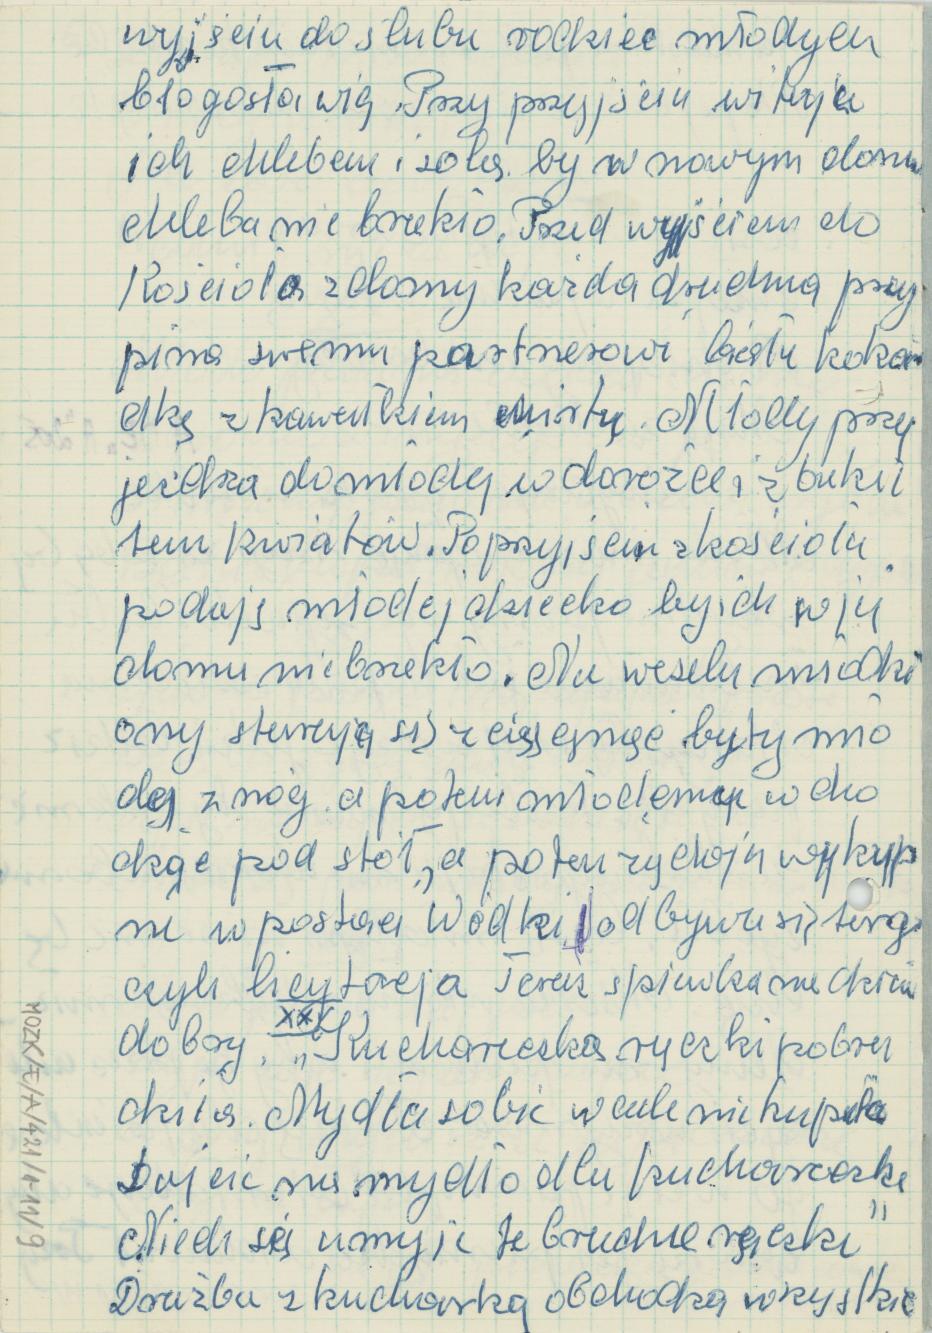 wyjściu do ślubu rodzice młodych
błogosławią. Przy przyjściu witają
ich chlebem i solą by w nowym domu
chleba nie brakło. Przed wyjściem do
Kościoła z domy każda druchna przy
pina swemu partnerowi białą koka
dkę z kawałkiem mirtu. Młody przy
jeżdża do młodej w dorożce i z bukie
tem kwiatów. Po przyjściu z kościoła
podają młodej dziecko by ich w jej
domu nie brakło. Na weselu
starają się ściągnąć buty mło
dej z nóg a potem młodemu wcho
dząc pod stół, a potem rządają wykyp
ne w postaci Wódki odbywa się targ
czyli licytacja Teraz śpiewka na dzień
dobry. „Kuchareczka rączki pobru
dziła. Mydła sobie wcale nie kupiła
Dajcie na mydło dla kuchareczki
Niech się umyje te brudne rączki"
Drużba z kucharką obchodzą wszystkie
XXX
MOZK/E/A/421/4-11/9